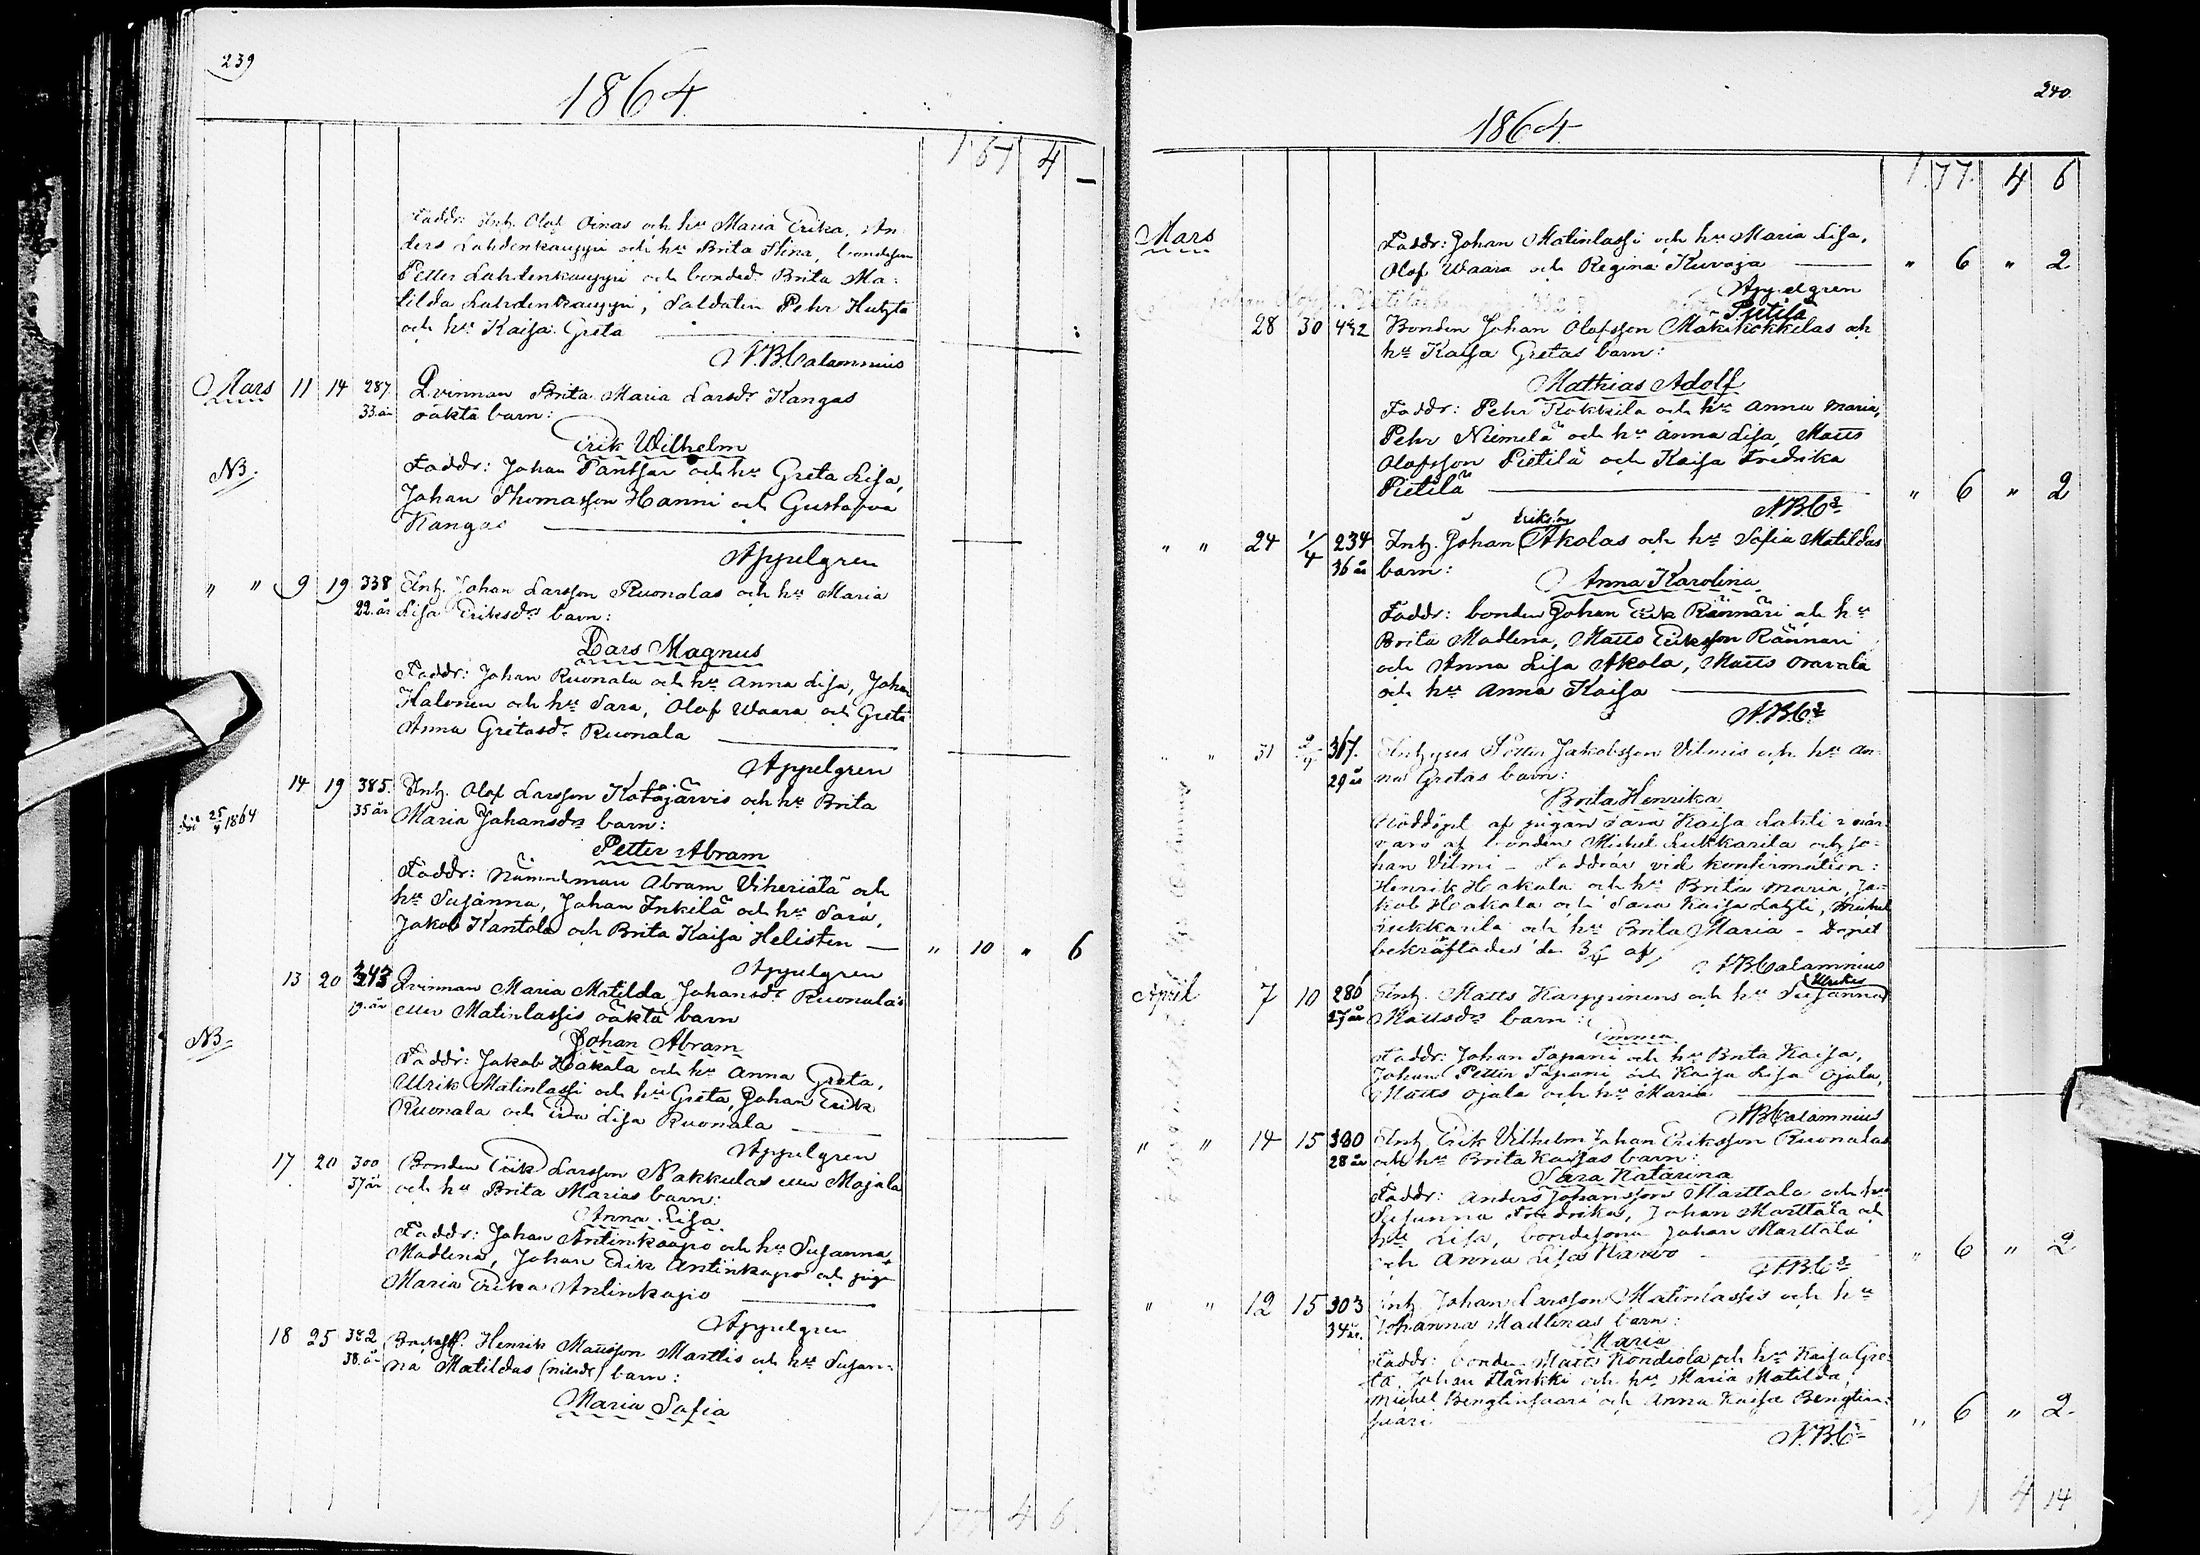 239
1864
1 67 4 –
Faddr: Inh. Olof Oinas och hu Maria Erika, An-
ders Lahdenkauppi och hu Brita Stina, bondeson
Petter Lahdenkauppi och bonded. Brita Ma-
tilda Lahdenkauppi, Soldaten Pehr Huhta
och hu Kaisa Greta
N.B.Calamnius
Mars 11 14 287 Qvinnan Brita Maria Larsdr Kangas
33 år oäkta barn:
Erik Wilhelm
NB. Faddr: Johan Pantsar och hu Greta Lisa,
Johan Thomasson Hanni och Gustafva
Kangas
Appelgren
" " 9 19 338 Inh. Johan Larsson Ruonalas och hu Maria
22 år Lisa Eriksdrs barn:
Lars Magnus
Faddr: Johan Ruonala och hu Anna Lisa, Johan
Kalonen och hu Sara, Olof Waara och Greta
Anna Gretasdr Ruonala
Appelgren
14 19 385. Inh. Olof Larsson Kotajärvis och hu Brita
död 25/4 1864 35 år Maria Johansdrs barn:
Petter Abram
Faddr: Nämndeman Abram Viheriälä och
hu Susanna, Johan Inkilä och hu Sara,
Jakob Kantola och Brita Kaisa Helisten
" 10 " 6
Appelgren
13 20 343 Qvinnan Maria Matilda Johansdr Ruonalas
19 år eller Matinlassis oäkta barn
Johan Abram
NB. Faddr: Jakob Hoakala och hu Anna Greta,
Ulrik Matinlassi och hu Greta, Johan Erik
Ruonala och Eva Lisa Ruonala
Appelgren
17 20 300 Bonden Erik Larsson Nakkulas eller Majala
37 år och hu Brita Marias barn:
Anna Lisa
Faddr: Johan Antinkaapo och hu Susanna
Madlena, Johan Erik Antinkapo och pigan
Maria Erika Antinkapo
Appelgren
18 25 382 Henrik Mattsson Marttis och hu Susan-
38 år na Matildas barn:
Maria Sofia
1 77 4 6
240.
1864.
1 77. 4 6
Mars Faddr: Johan Matinlassi och hu Maria Lisa,
Olof Waara och Regina Kuvaja
" 6 " 2
Appelgren
Pietilä
28 30 432 Bonden Johan Olofsson Mäkikokkilas och
hu Kaisa Gretas barn:
Mathias Adolf
Faddr: Pehr Kokkila och hu Anna Maria,
Pehr Niemelä och hu Anna Lisa, Matts
Olofsson Pietilä och Kaisa Fredrika
Pietilä
" 6 " 2
N.B.Cs
Eriksson
" " 24 1/4 234 Inh. Johan Akolas och hu Sofia Matildas
36 år barn:
Anna Karolina
Faddr: bonden Johan Erik Rännäri och hu
Brita Madlena, Matts Eriksson Rännari
och Anna Lisa Akola, Matts Oravala
och hu Anna Kaisa
N.B.Cs
" " 31 3/4 317. Inhyses Petter Jakobsson Vilmis och hu An-
29 år na Gretas barn:
Brita Henrika
Nöddöpt af pigan Sara Kaisa Lahti i när-
varo af bonden Michel Lukkarila och Jo-
han Vilmi – Faddrar vid konfirmation:
Henrik Hoakala och hu Brita Maria, Ja-
kob Hoakala och Sara Kaisa Lahti, Michel
Lukkarila och hu Brita Maria – Dopet
bekräftades den 3/4 af
N.B.Calamnius
Ulrika
April 7 10 286 Inh. Matts Karppinens och hu Susanna
27 år Mattsdrs barn:
Emma
Faddr: Johan Tapani och hu Brita Kaisa,
Johan Petter Tapani och Kaisa Lisa Ojala,
Matts Ojala och hu Maria
N.B.Calamnius
" " 14 15 330 Inh. Erik Vilhelm Johan Eriksson Ruonalas
28 år och hu Brita Kaisas barn:
Sara Katarina
Faddr: Anders Johansson Marttala och hu
Susanna Fredrika, Johan Marttala och
hu Lisa, bondesonen Johan Marttala
och Anna Lisa Harvo
" 6 " 2
N.B.Cs
" " 12 15 303 Inh. Johan Larsson Matinlassis och hu
34 år. Johanna Madlenas barn:
Maria
Faddr: bonden Matts Kondiola och hu Kaisa Gre-
ta, Johan Hankki och hu Maria Matilda,
Michel Bengtinsaari och Anna Kaisa Bengtin-
saari
" 6 " 2.
N.B.Cs
4 14